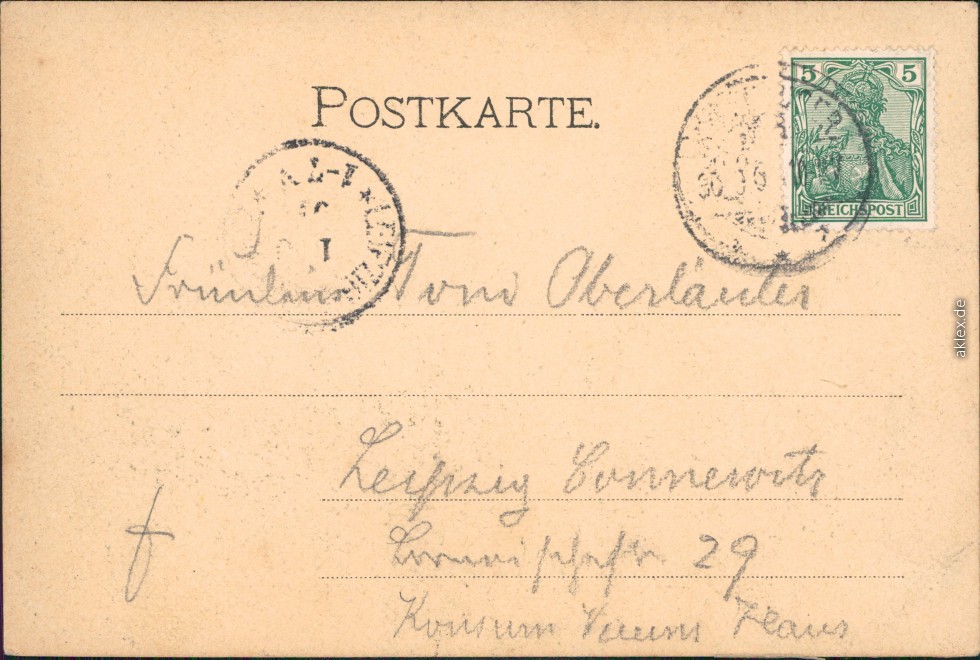 POSTKARTE.
5 5
REICHSPOST
Fräulein Toni Oberländer
Leipzig Connewitz
29
Konsum Haus
aklex.de